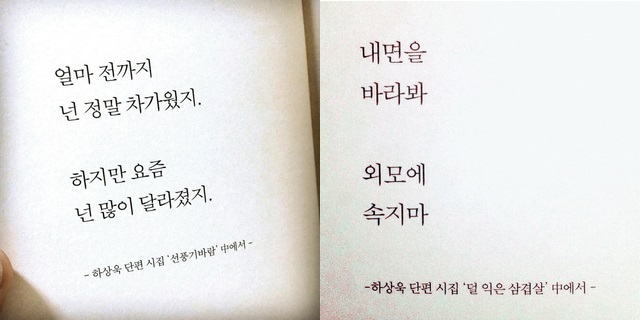 얼마 전까지
넌 정말 차가웠지.
하지만 요즘
넌 많이 달라졌지.
- 하상욱 단편 시집 '선풍기바람' 中에서 -
내면을
바라봐
외모에
속지마
-하상욱 단편 시집 '덜 익은 삼겹살' 中에서 -